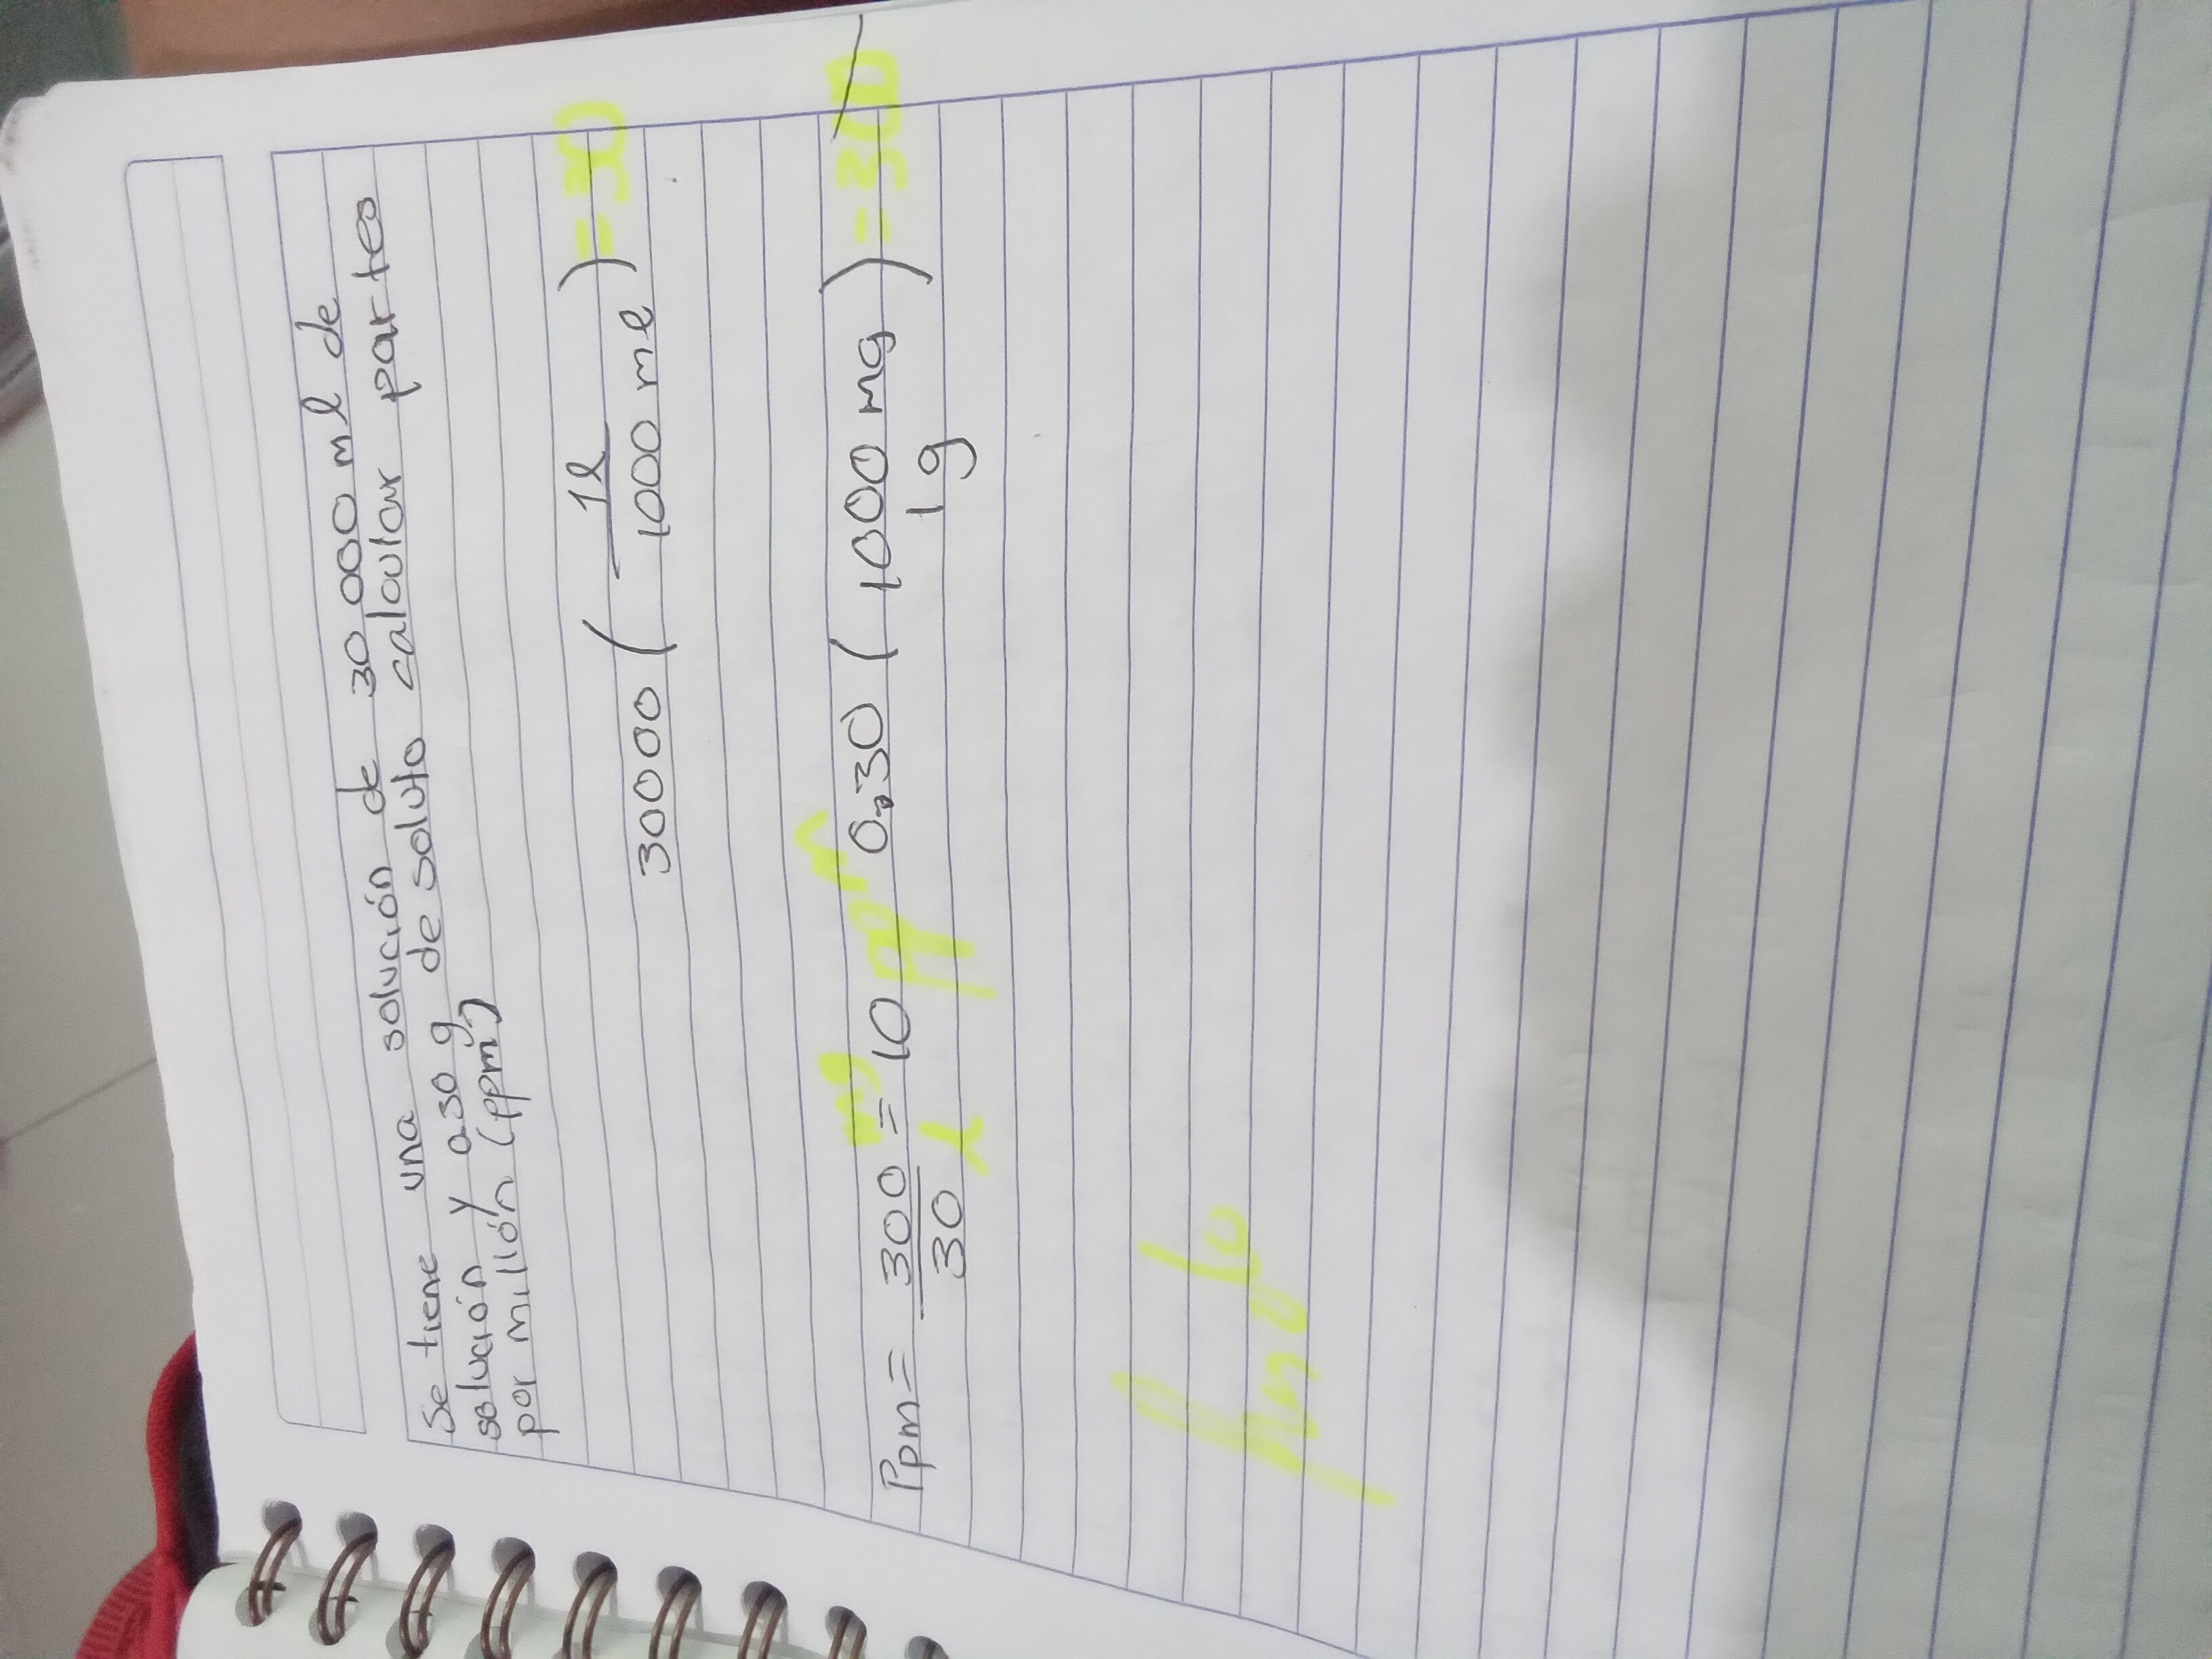 Se tiene una solución de 30 000 ml de
solución y 0.30 g de soluto calcular partes
por millón (ppm)
30000 ( 1l / 1000 ml ) = 30
Ppm = 300 mg / 30 l = 10 ppm
0.30 ( 1000 mg / 1 g ) = 300